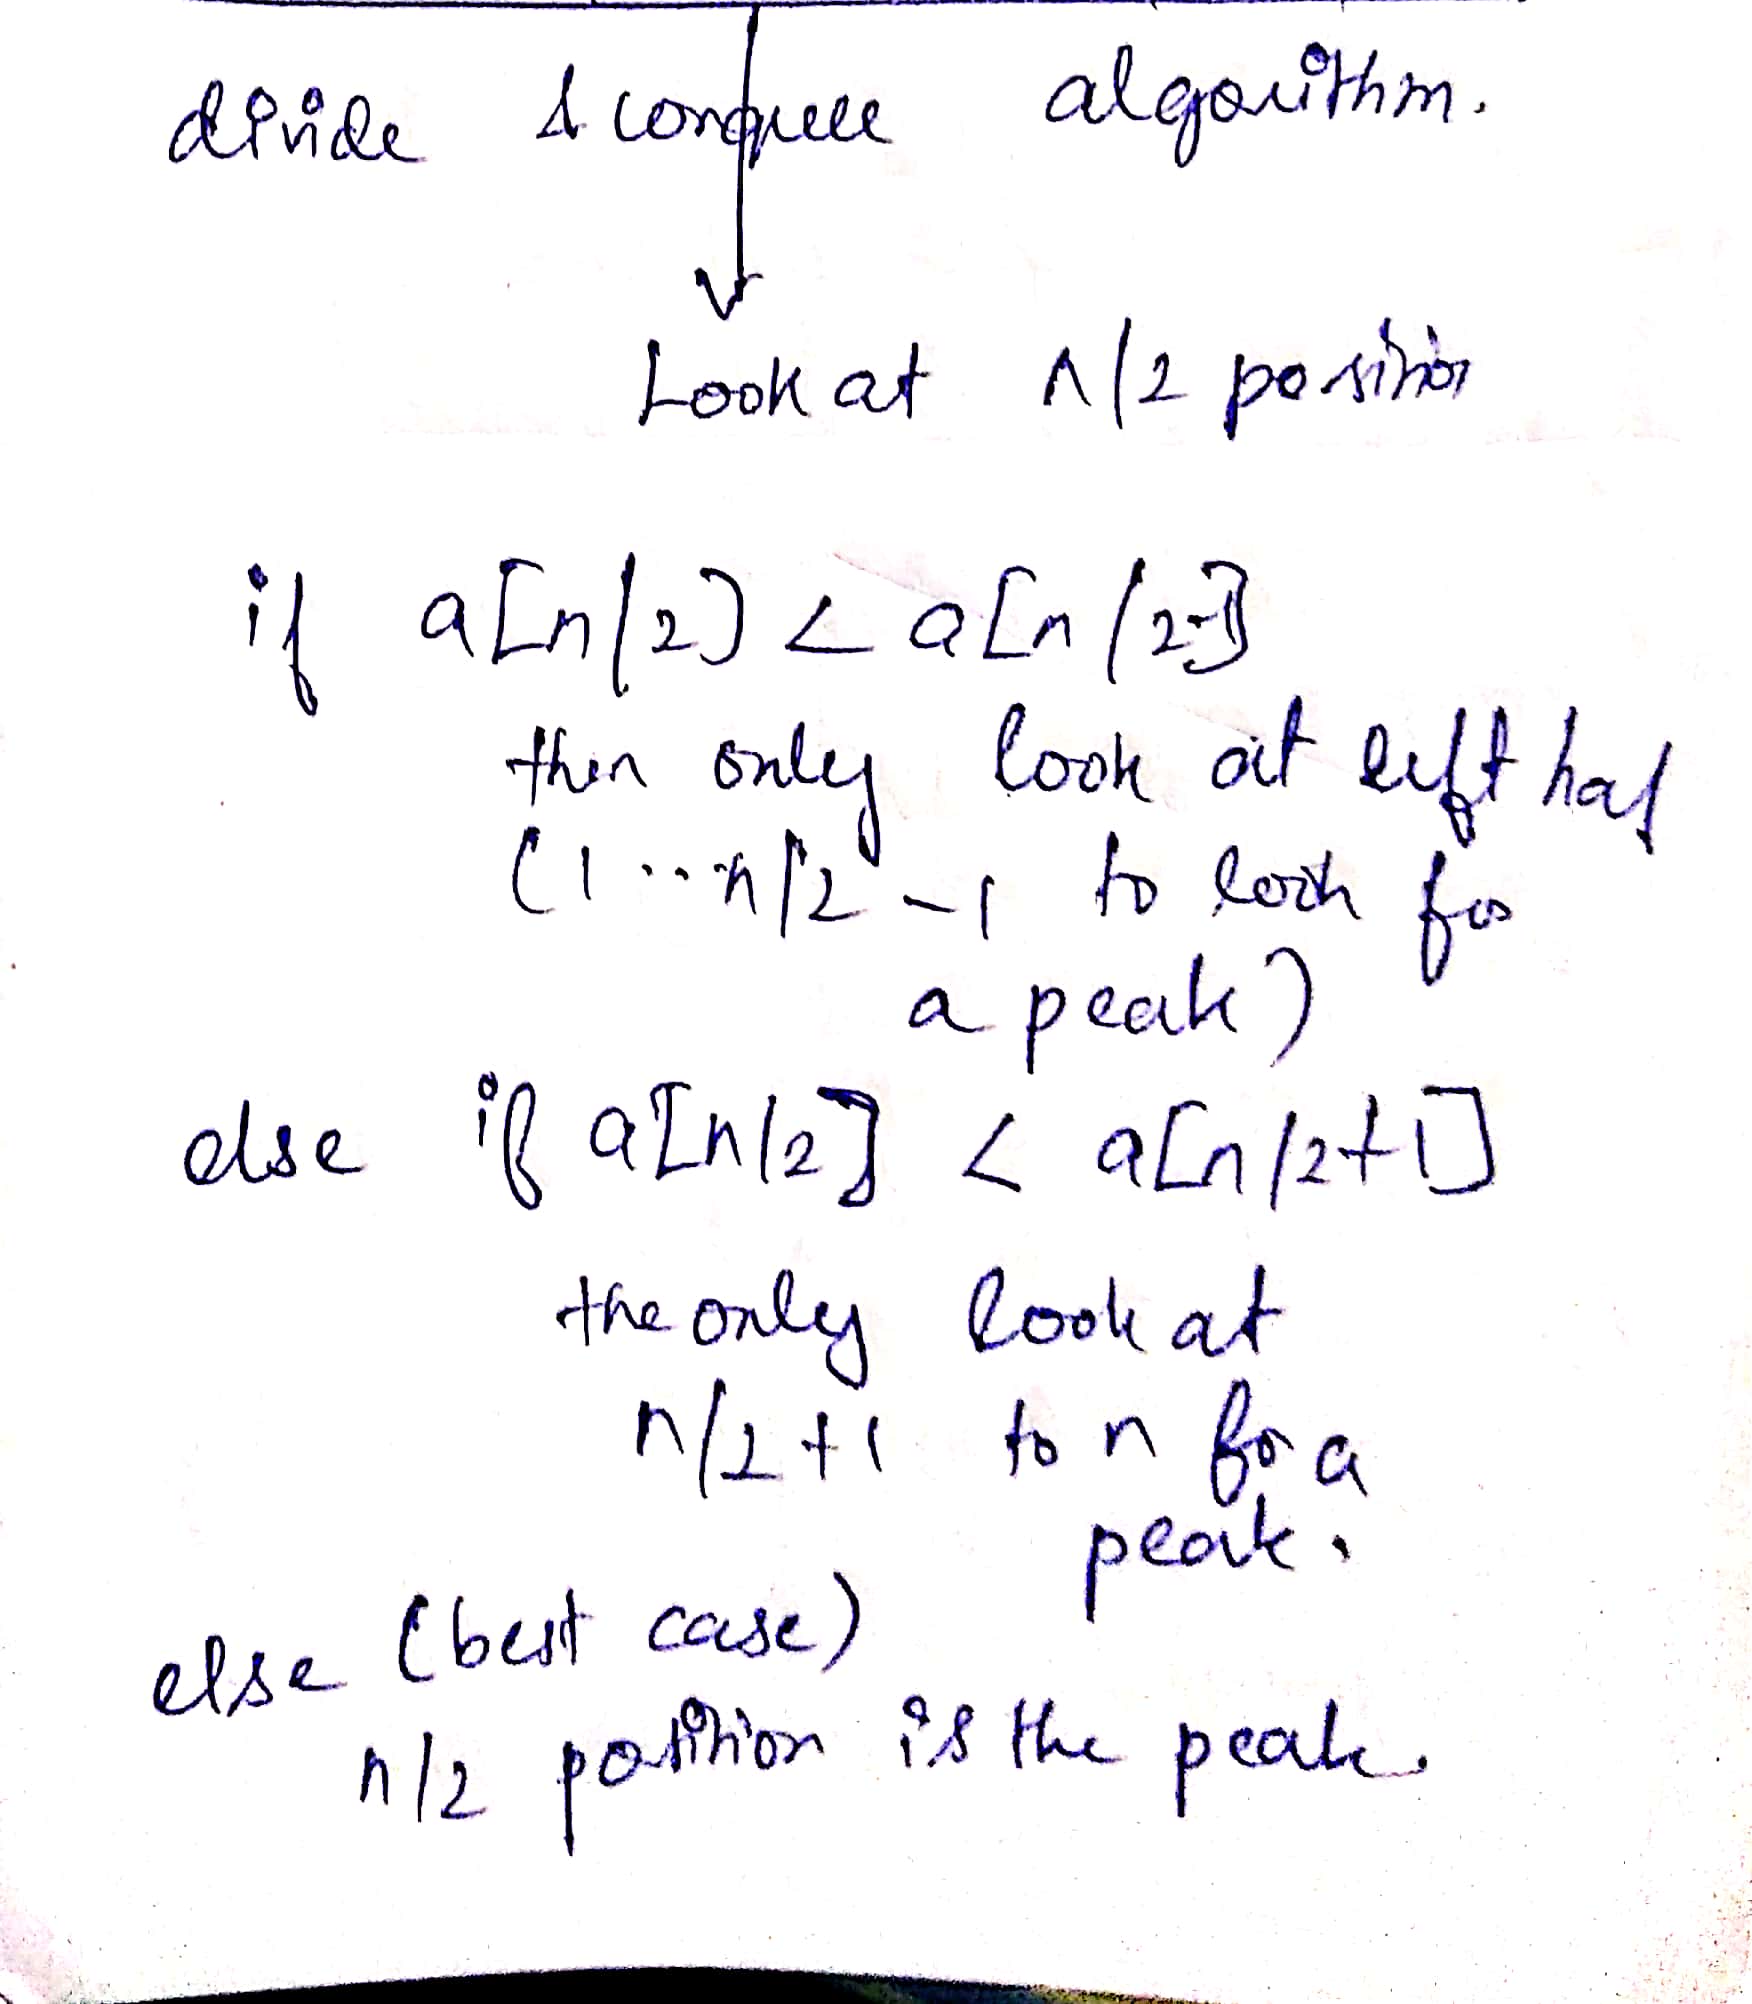 divide & conquer algorithm.
Look at n/2 position
if a[n/2] < a[n/2-1]
then only look at left half
(1...n/2-1 to look for
a peak)
else if a[n/2] < a[n/2+1]
the only look at
n/2+1 to n for a
peak.
else (best case)
n/2 position is the peak.